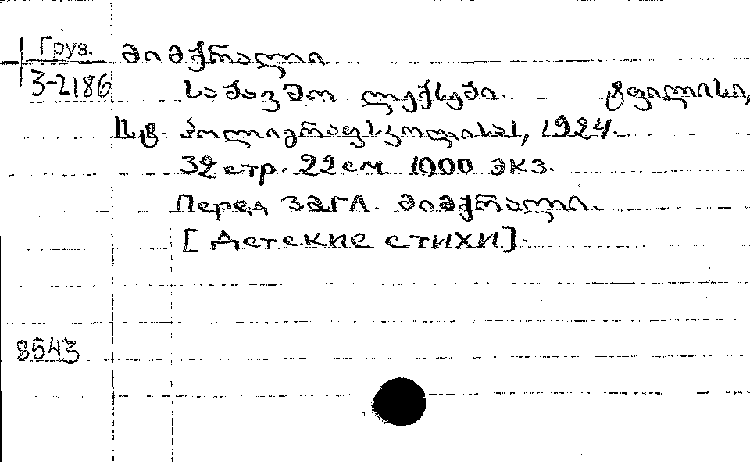 Груз. მიმქრალი
3-2186 საბავშო ლექსები. ტფილისი,
სტ. პოლიგრაფსკოლისა, 1924.
32 стр. 22 см 1000 экз.
Перед загл. მიმქრალი.
[Детские стихи].
8543